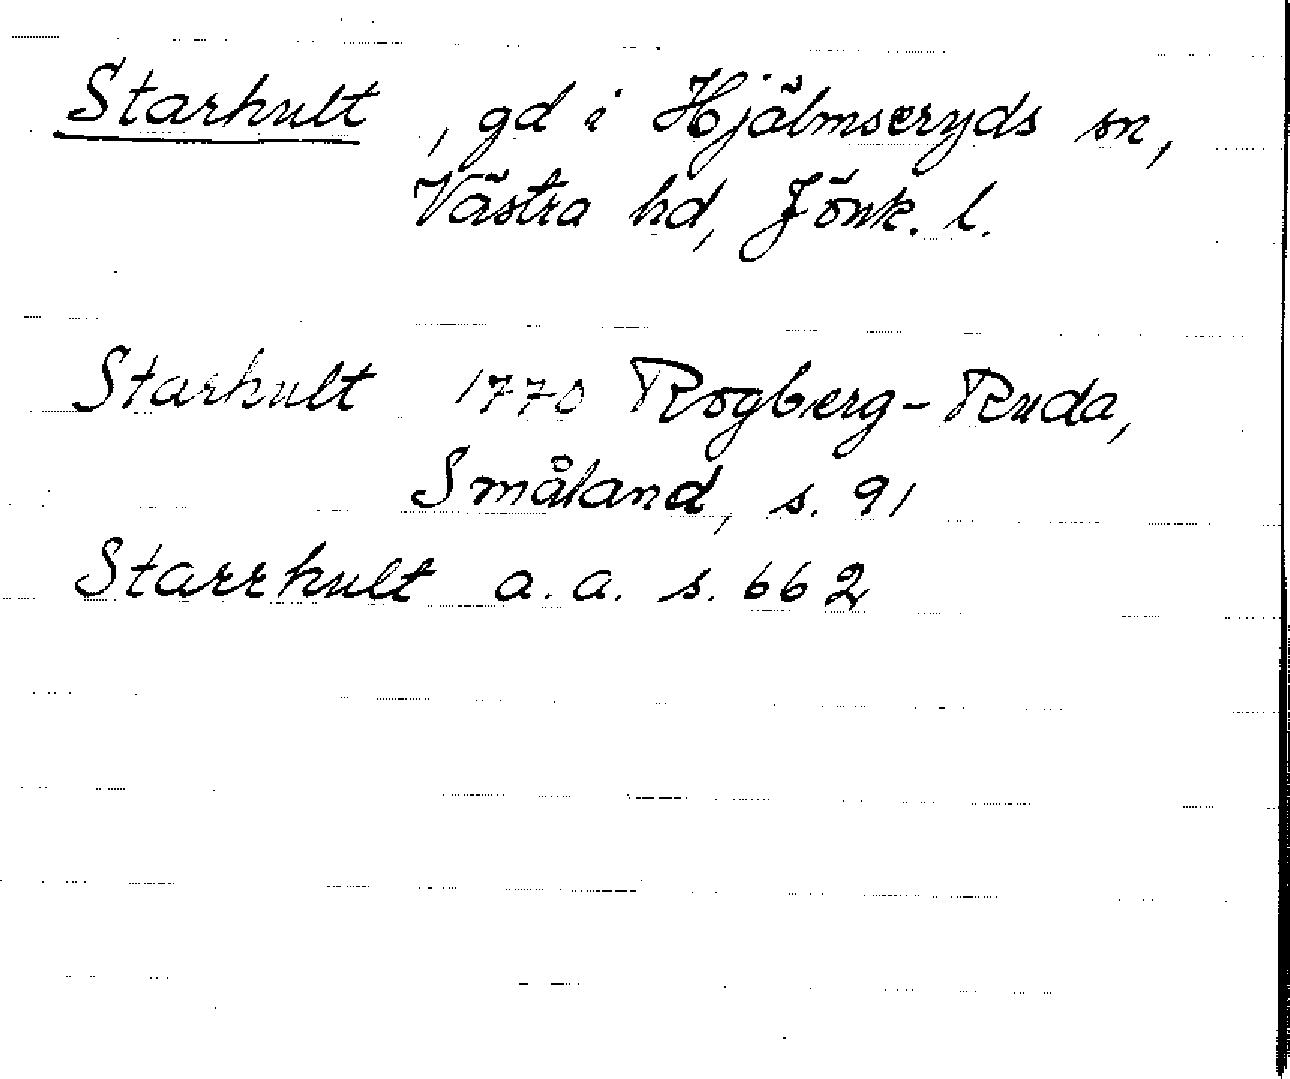 Starhult, gd i Hjälmseryds sn,
Västra hd, Jönk. l.
Starhult 1770 Rogberg-Ruda,
Småland, s. 91
Starrhult a. a. s. 662